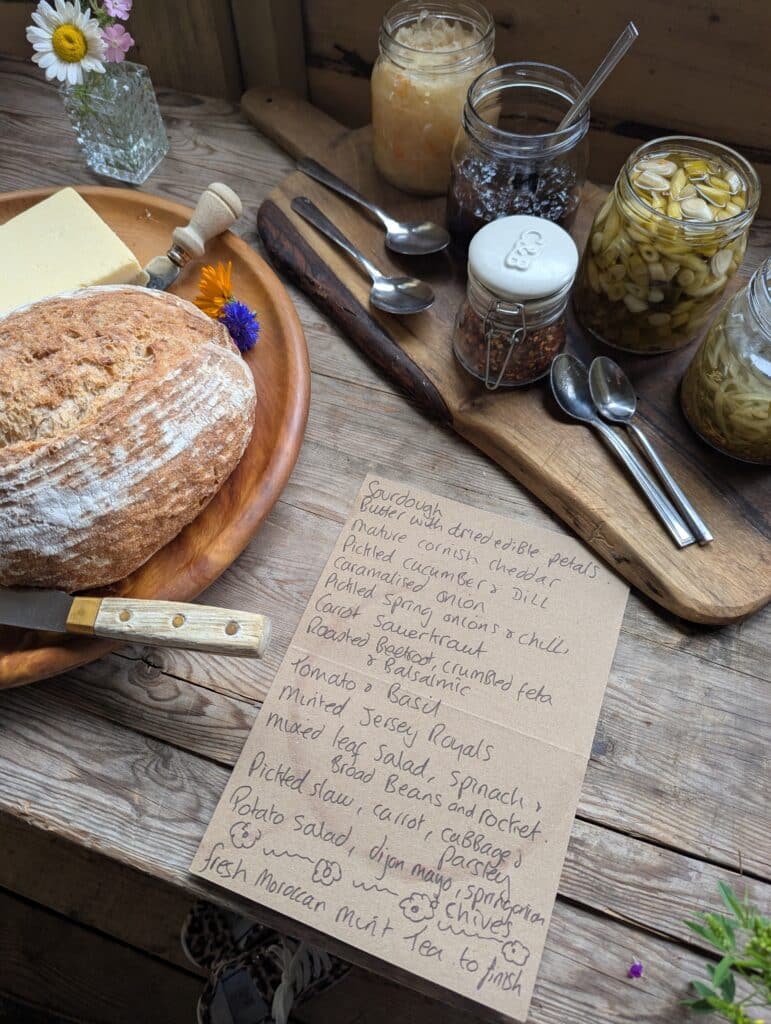 Sourdough
Butter with dried edible petals.
mature cornish cheddar
Pickled cucumber & Dill
Caramalised onion
Pickled spring onions & chilli
Carrot Sauerkraut
Roasted Beetroot, crumbled feta
& Balsalmic
Tomato & Basil
Minted Jersey Royals
mixed leaf salad, spinach,
Broad Beans and rocket.
Pickled slaw, carrot, cabbage &
Parsley
Potato Salad, dijon mayo, spring onion
chives
fresh Moroccan Mint Tea to finish